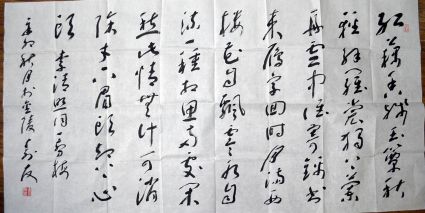 红藕香残玉簟秋
轻解羅裳独上蘭
舟雲中谁寄锦书
来雁字回时月满西
楼花自飘零水自
流一种相思两处闲
愁此情無计可消
除才下眉头却上心
头 李清照词一剪梅
辛卯秋月于金陵